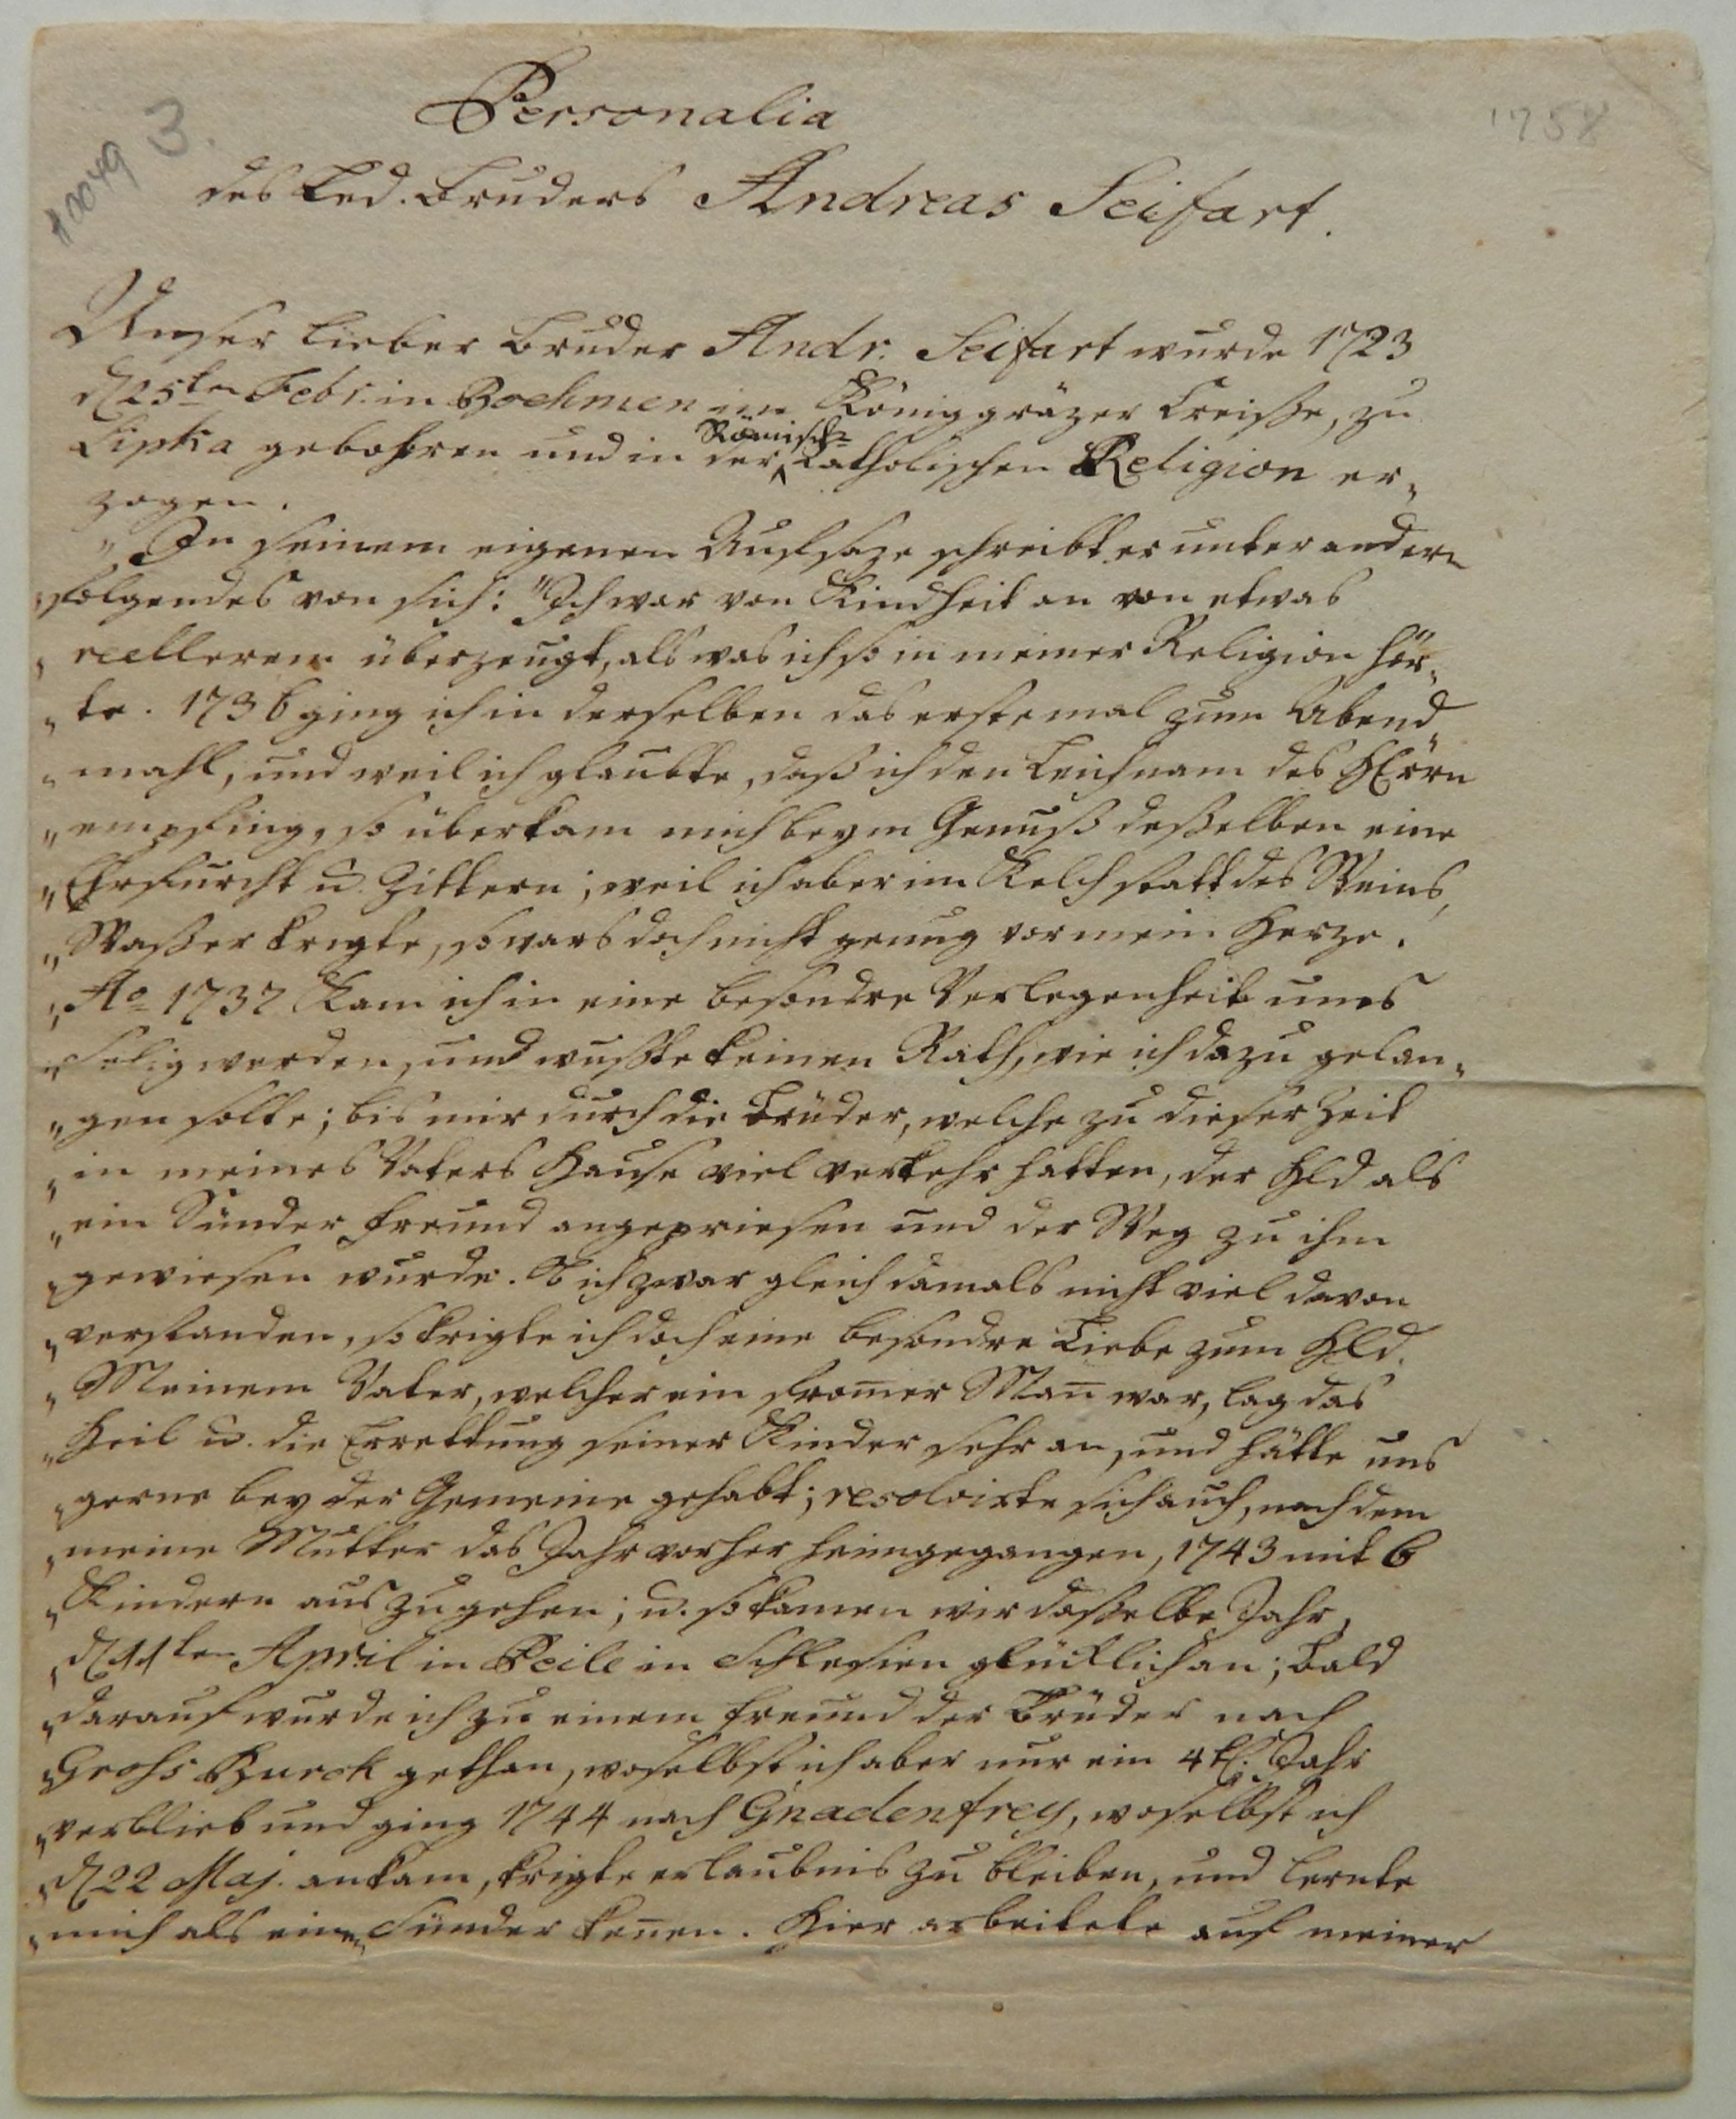 Personalia
des led. Bruders Andreas Seifart.
10049 3.
1758
Unser lieber Bruder Andr. Seifart wurde 1723
d 25ten Febr. in Boehmen im Königgräzer Creisse, zu
Lipka gebohren und in der Römisch=
Catholischen Religion er-
zogen.
" In seinem eigenen Aufsaze schreibt er unter andern
" folgendes von sich: "Ich war von Kindheit an von etwas
" reellerem überzeugt, als was ich so in meiner Religion hör-
" te. 1736 ging ich in derselben das erste mal zum Abend-
" mahl, und weil ich glaubte, daß ich den Leichnam des HErrn
" empfing, so überkam mich beym Genuß deßelben eine
" Ehrfurcht u. Zittern; weil ich aber im Kelch statt des Weins,
" Waßer krigte, so wars doch nicht genug vor mein Herze.
" Ao 1737 kam ich in eine besondre Verlegenheit ums
" Seligwerden, und wußte keinen Rath, wie ich dazu gelan-
" gen solte; bis mir durch die Brüder, welche zu dieser Zeit
" in meines Vaters Hause viel verkehr hatten, der Hld als
" ein Sünder Freund angepriesen und der Weg zu ihm
" gewiesen wurde. Ob ich zwar gleich damals nicht viel davon
" verstanden, so krigte ich doch eine besondre Liebe zum Hld.
" Meinem Vater, welcher ein from̅er Man̅ war, lag das
" Heil u. die Errettung seiner Kinder sehr an, und hätte uns
" gerne bey der Gemeine gehabt; resolvirte sich auch, nachdem
" meine Mutter das Jahr vorher heimgegangen, 1743 mit 6
" Kindern auszugehen; u. so kamen wir daßelbe Jahr,
" d 11ten April in Peile in Schlesien glücklich an; bald
" darauf wurde ich zu einem Freund der Brüder nach
" Grohs Burck gethan, woselbst ich aber nur ein 4tl. Jahr
" verblieb und ging 1744 nach Gnadenfrey, woselbst ich
" d 22 Maj. ankam, krigte erlaubnis zu bleiben, und lernte
" mich als einen Sünder ken̅en. Hier arbeitete auf meiner